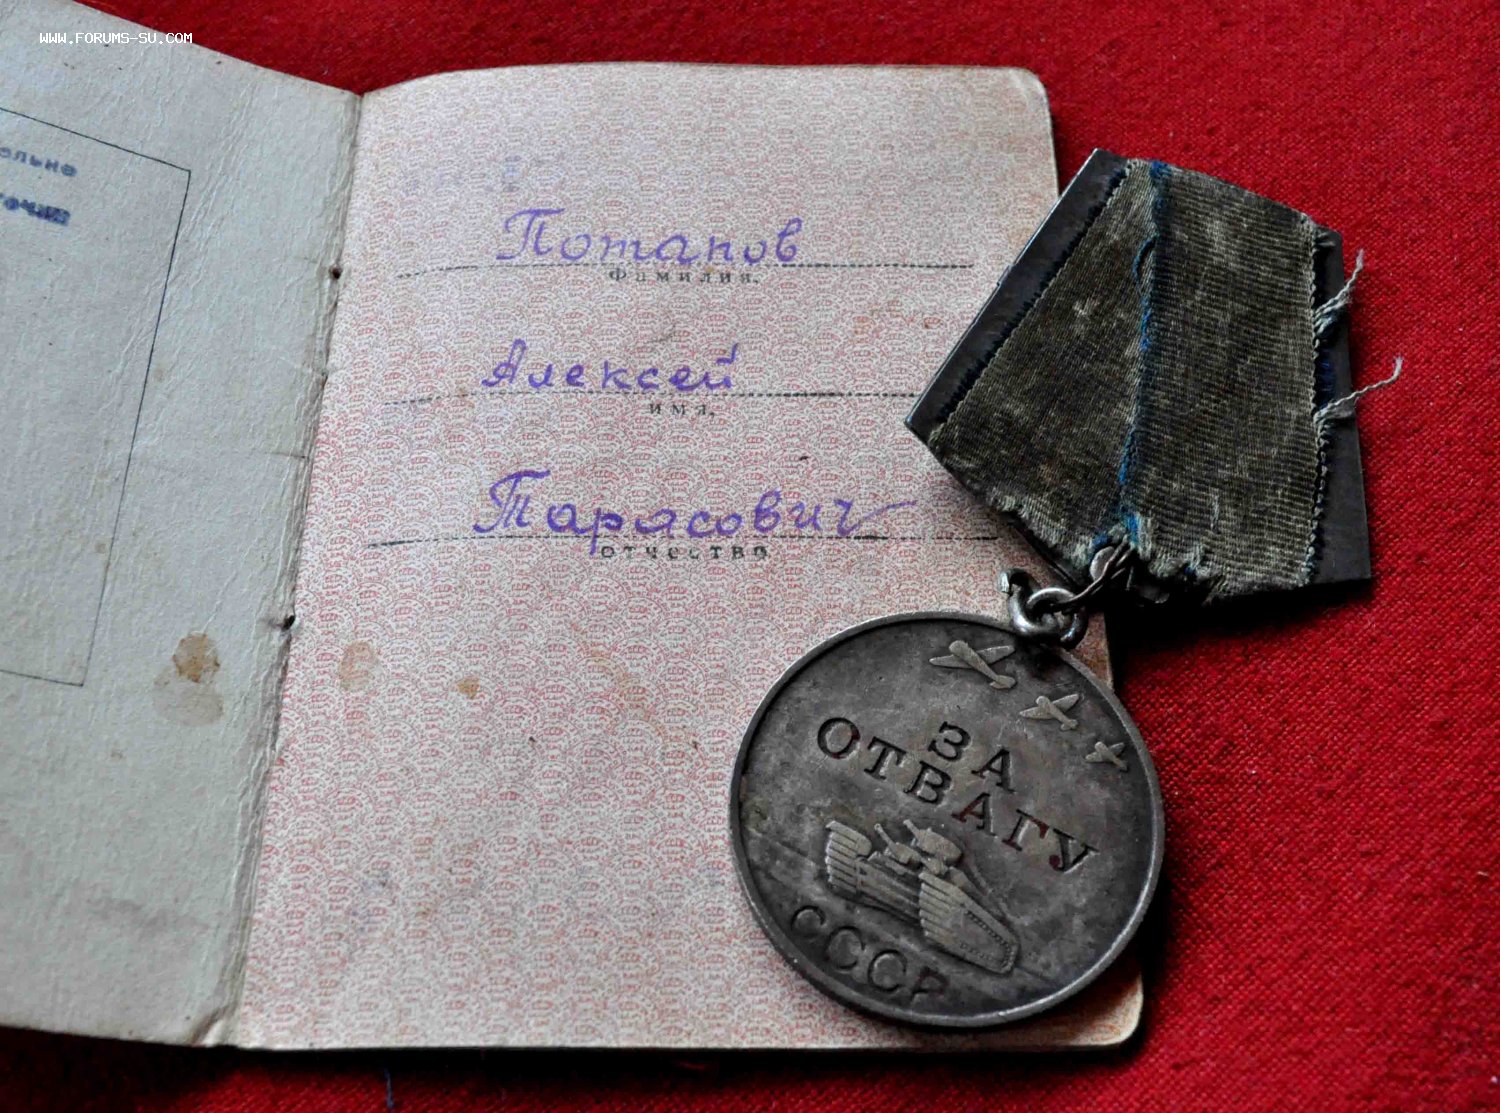 WWW.FORUMS-SU.COM
Потапов
Фамилия.
Алексей
имя.
Тарасович
отчество
ЗА
ОТВАГУ
СССР